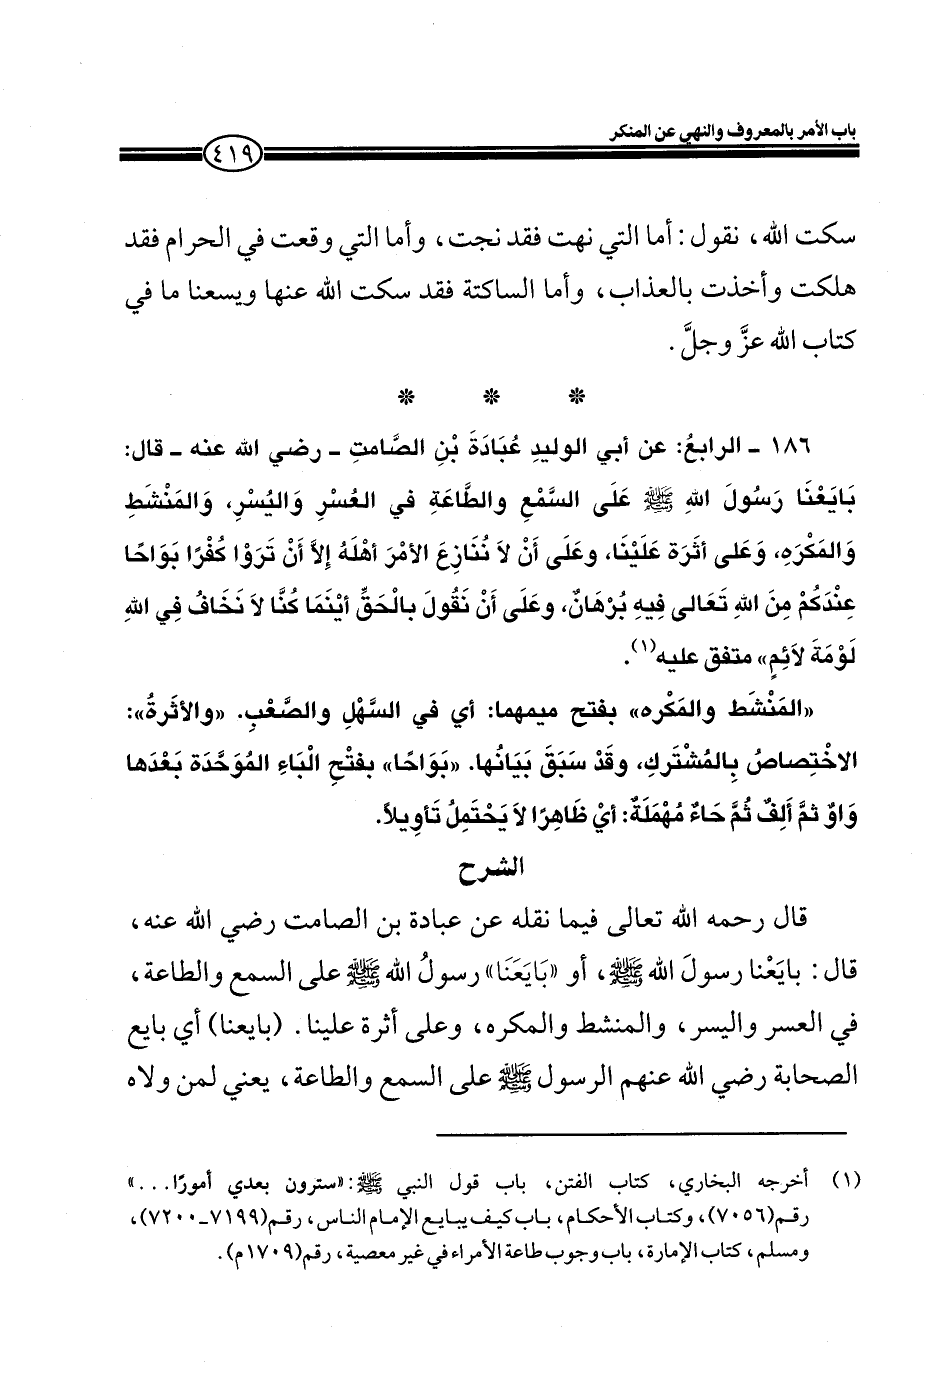 باب الأمر بالمعروف والنهي عن المنكر
٤١٩
سكت الله، نقول: أما التي نهت فقد نجت، وأما التي وقعت في الحرام فقد
هلكت وأخذت بالعذاب، وأما الساكتة فقد سكت الله عنها ويسعنا ما في
كتاب الله عزَّ وجلَّ.
* * *
١٨٦ ـ الرابعُ: عن أبي الوليدِ عُبَادَةَ بْنِ الصَّامتِ ـ رضي الله عنه ـ قال:
بَايَعْنَا رَسُولَ اللهِ ﷺ عَلَى السَّمْعِ والطَّاعَةِ في العُسْرِ وَاليُسْرِ، وَالمَنْشَطِ
وَالمَكْرَهِ، وَعَلى أثَرَة عَلَيْنَا، وعَلَى أَنْ لاَ نُنَازِعَ الأمْرَ أهْلَهُ إلاَّ أَنْ تَرَوْا كُفْرًا بَوَاحًا
عِنْدَكُمْ مِنَ اللهِ تَعَالى فِيهِ بُرْهَانٌ، وعَلَى أَنْ نَقُولَ بالْحَقِّ أيْنَمَا كُنَّا لاَ نَخَافُ فِي اللهِ
لَوْمَةَ لاَئِمٍ» متفق عليه(١).
«المَنْشَط والمَكْره» بفتح ميمهما: أي في السَّهْلِ والصَّعْبِ. «والأثَرةُ»:
الاخْتِصاصُ بِالمُشْتَركِ، وقَدْ سَبَقَ بَيَانُها. «بَوَاحًا» بفَتْحِ الْبَاءِ المُوَحَّدَة بَعْدَها
وَاوٌ ثمَّ أَلِفٌ ثُمَّ حَاءٌ مُهْمَلَةٌ: أيْ ظَاهِرًا لاَ يَحْتَمِلُ تَأوِيلاً.
الشرح
قال رحمه الله تعالى فيما نقله عن عبادة بن الصامت رضي الله عنه،
قال: بايَعْنا رسولَ الله ﷺ، أو «بَايَعَنَا» رسولُ الله ﷺ على السمع والطاعة،
في العسر واليسر، والمنشط والمكره، وعلى أثرة علينا. (بايعنا) أي بايع
الصحابة رضي الله عنهم الرسول ﷺ على السمع والطاعة، يعني لمن ولاه
(١) أخرجه البخاري، كتاب الفتن، باب قول النبي ﷺ: «سترون بعدي أمورًا...»
رقم(٧٠٥٦)، وكتاب الأحكام، باب كيف يبايع الإمام الناس، رقم(٧١٩٩ـ٧٢٠٠)،
ومسلم، كتاب الإمارة، باب وجوب طاعة الأمراء في غير معصية، رقم(١٧٠٩م).